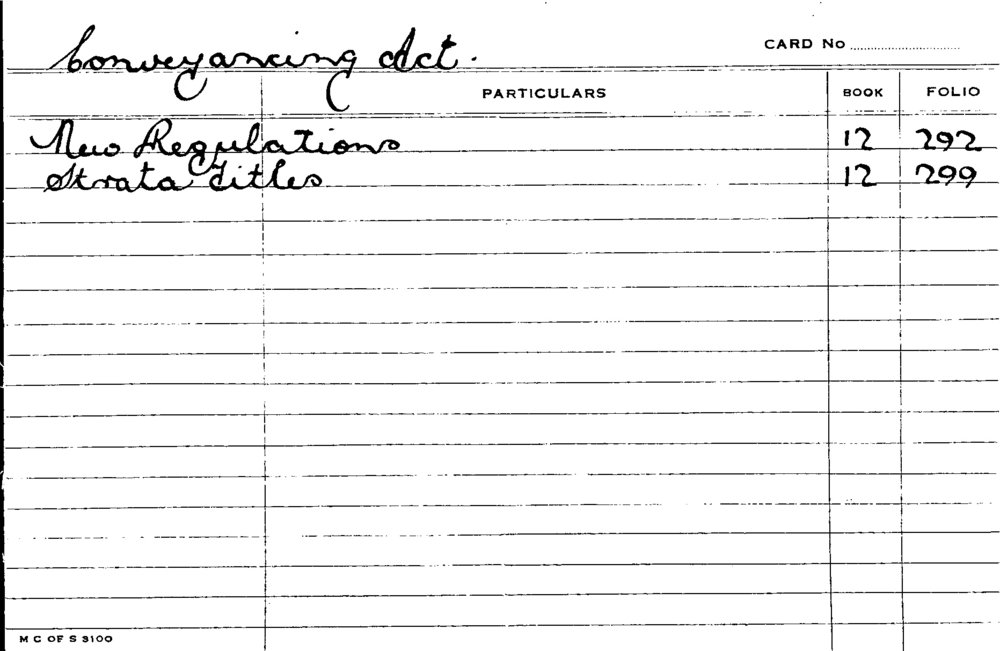 Conveyancing Act.
CARD No
PARTICULARS BOOK FOLIO
New Regulations 12 292
Strata Titles 12 299
M C OF S 3100